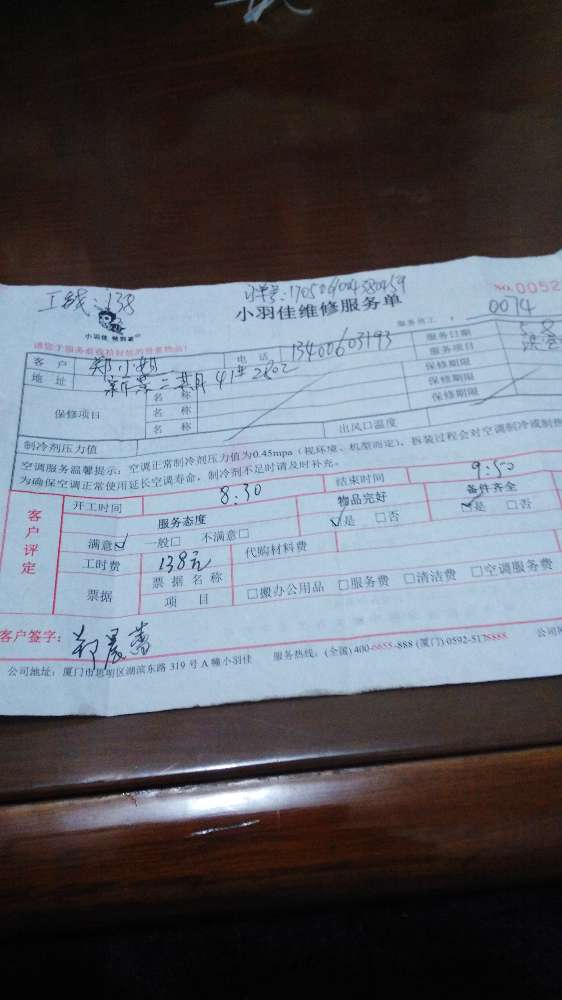 工钱:138
订单号:17050604380459
小羽佳维修服务单
NO.0052
小羽佳 帮到家
服务员工:
0074
请您于服务前收拾好您的贵重物品!
客 户
郑小姐
电 话
13400603193
服务日期
5.8
地 址
新景三期41#2802
服务项目
保修项目
名 称
保修期限
名 称
保修期限
名 称
保修期限
制冷剂压力值
出风口温度
空调服务温馨提示:空调正常制冷剂压力值为0.45mpa(视环境、机型而定),拆装过程会对空调制冷或制热
为确保空调正常使用延长空调寿命,制冷剂不足时请及时补充。
客户评定
开工时间
8:30
结束时间
9:50
服务态度
物品完好
备件齐全
满意☑ 一般□ 不满意□
☑是 □否
☑是 □否
工时费
138元
代购材料费
票据
票据名称
项 目
□搬办公用品 □服务费 □清洁费 □空调服务费
客户签字:
郑晨蕾
公司地址:厦门市思明区湖滨东路 319 号 A 幢小羽佳
服务热线:(全国)400-6655-888 (厦门)0592-5178888
公司网